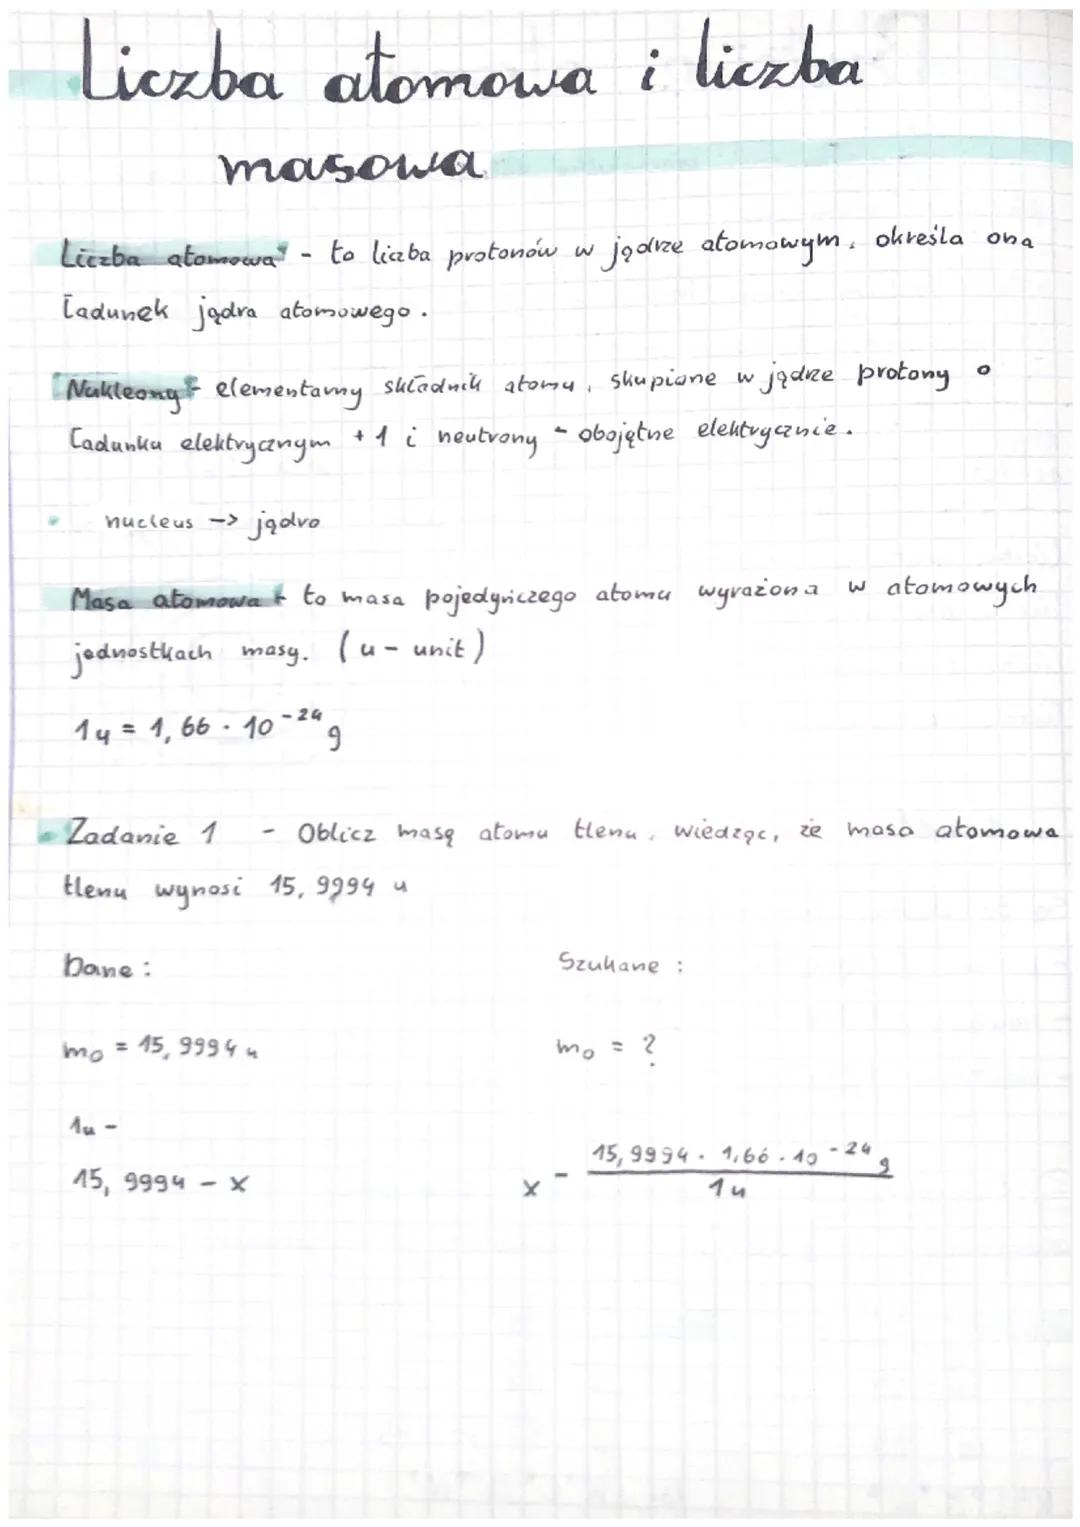 Liczba atomowa i liczba
masowa
Liczba atomowa - to liczba protonów w jądrze atomowym, określa ona
ładunek jądra atomowego.
Nukleony - elementarny składnik atomu, skupiane w jądrze protony o
ładunku elektrycznym +1 i neutrony - obojętne elektrycznie.
nucleus -> jądro
Masa atomowa - to masa pojedyńczego atomu wyrażona w atomowych
jednostkach masy. (u - unit)
1u = 1,66 · 10⁻²⁴ g
Zadanie 1 - Oblicz masę atomu tlenu, wiedząc, że masa atomowa
tlenu wynosi 15,9994 u
Dane: Szukane:
mo = 15,9994 u mo = ?
1u -
15,9994 · 1,66 · 10⁻²⁴ g
15,9994 - x x -
1u